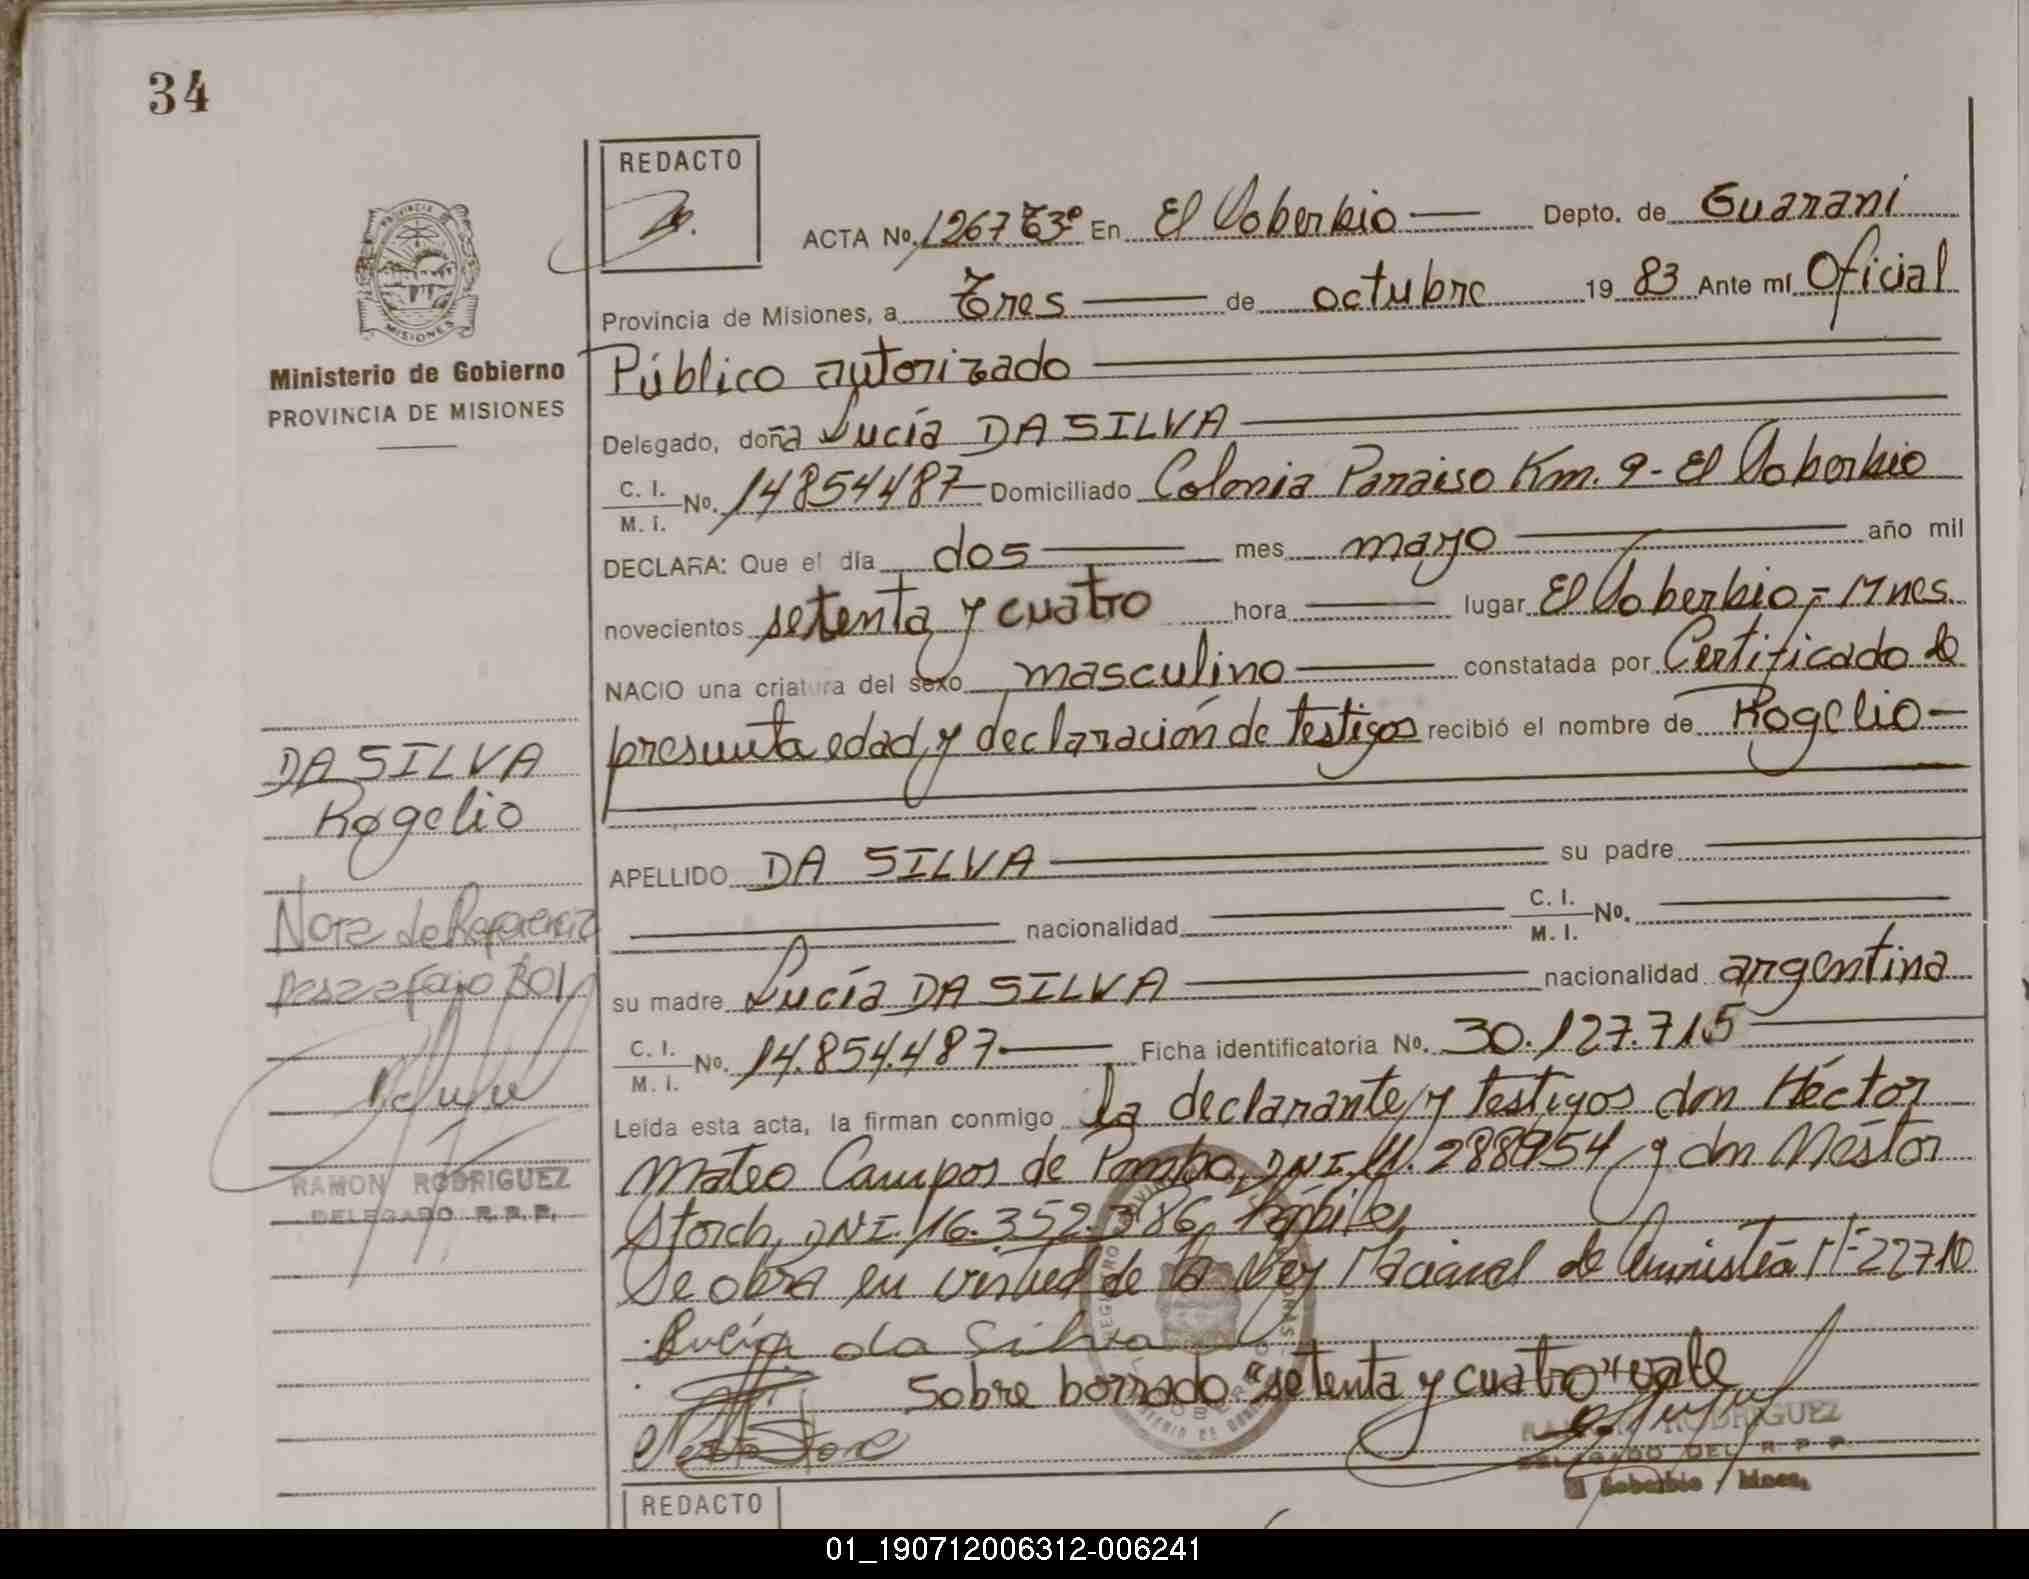 34
REDACTO
ACTA No. 1267 T3º En El Soberbio Depto. de Guaraní
Provincia de Misiones, a Tres de octubre 19 83 Ante mí Oficial
Ministerio de Gobierno
PROVINCIA DE MISIONES
Público autorizado
Delegado, doña Lucía DA SILVA
C. I.
M. I. No. 14854487 Domiciliado Colonia Paraiso Km. 9 - El Soberbio
DECLARA: Que el día dos mes mayo año mil
novecientos setenta y cuatro hora lugar El Soberbio, - Mnes.
NACIO una criatura del sexo masculino constatada por Certificado de
presunta edad y declaración de testigos recibió el nombre de Rogelio
DA SILVA
Rogelio
APELLIDO DA SILVA su padre
nacionalidad C. I.
M. I. No.
Nota de Referencia
pasa a fojo 301
su madre Lucía DA SILVA nacionalidad argentina
C. I.
M. I. No. 14.854.487 Ficha identificatoria No. 30.127.715
Leída esta acta, la firman conmigo la declarante, y testigos don Héctor
Mateo Campos de Pombo, DNI. 288954 y don Néstor
Storch, DNI. 16.352.386, hábiles,
RAMON RODRIGUEZ
DELEGADO R.P.P.
Se obra en virtud de la Ley Nacional de Amnistía Nº 22710
Lucía da Silva
Sobre borrado "setenta y cuatro" vale
RODRIGUEZ
DELEGADO DEL R. P. P.
El Soberbio / Mnes.
REDACTO
01_190712006312-006241